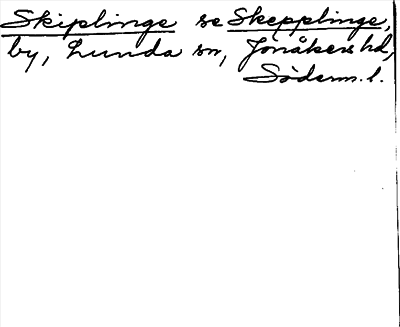 Skiplinge se Skepplinge,
by, Lunda sn, Jönåkers hd,
Söderm. l.